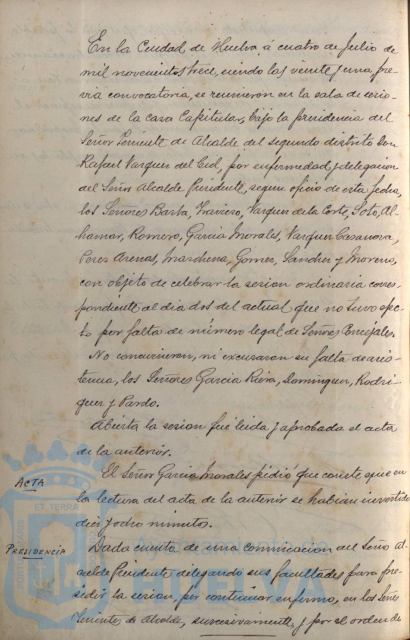 En la Ciudad de Huelva á cuatro de Julio de
mil novecientos trece, siendo las veinte y una pre-
via convocatoria, se reunieron en la sala de sesio-
nes de la casa Capitular, bajo la presidencia del
Señor Teniente de Alcalde del segundo distrito Don
Rafael Vazquez del Cid, por enfermedad y delegacion
del Señor Alcalde Presidente, segun oficio de esta fecha,
los Señores Barba, Traviezo, Vazquez de la Corte, Soto, Al-
hamar, Romero, Garcia Morales, Vazquez Casanova,
Perez Arenas, Marchena, Gomez, Sanchez y Moreno,
con objeto de celebrar la sesion ordinaria corres-
pondiente al dia dos del actual que no tuvo efec-
to por falta de número legal de Señores Concejales.
No concurrieron, ni excusaron su falta de asis-
tencia, los Señores Garcia Riera, Dominguez, Rodri-
guez y Pardo.
Abierta la sesion fué leida y aprobada el acta
de la anterior.
ACTA
El Señor Garcia Morales pidió que conste que en
la lectura del acta de la anterior se habian invertido
diez y ocho minutos.
PRESIDENCIA
Dada cuenta de una comunicacion del Señor Al-
calde Presidente delegando sus facultades para pre-
sidir la sesion, por continuar enfermo, en los Señores
Tenientes de Alcalde, sucesivamente y por el orden de
Ayuntamiento de